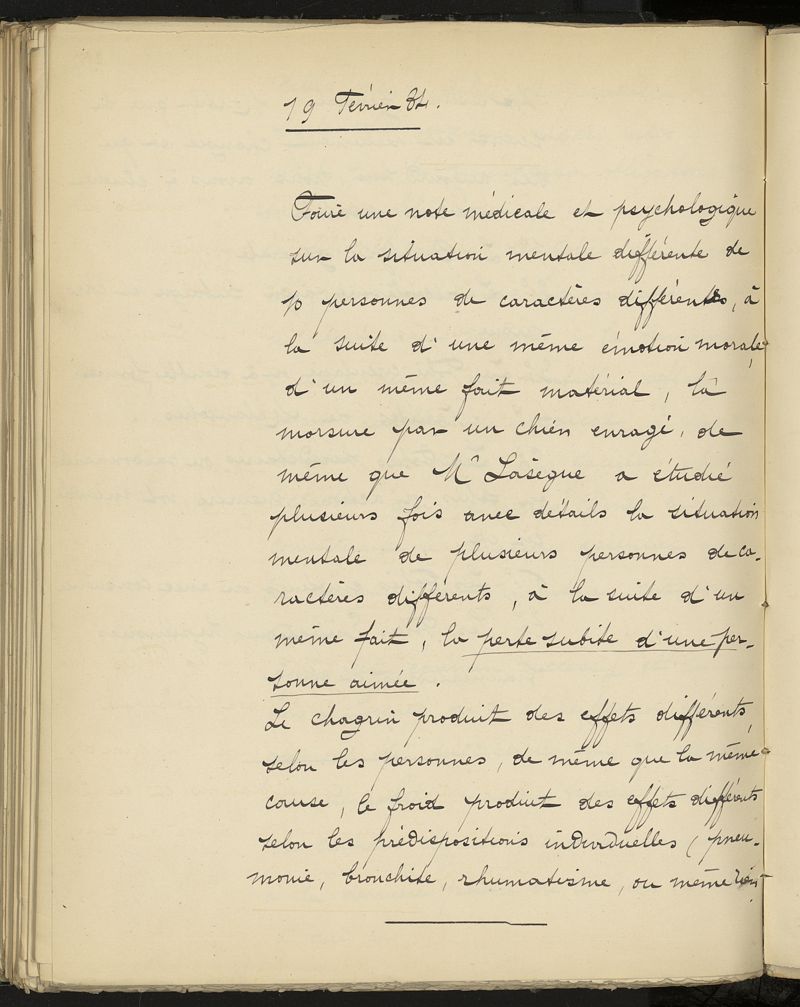 19 Février 84.
Faire une note médicale et psychologique
sur la situation mentale différente de
10 personnes de caractères différents, à
la suite d'une même émotion morale,
d'un même fait matérial, la
morsure par un chien enragé, de
même que Mr Lasègue a étudié
plusieurs fois avec détails la situation
mentale de plusieurs personnes de ca-
ractères différents, à la suite d'un
même fait, la perte subite d'une per-
sonne aimée.
Le chagrin produit des effets différents,
selon les personnes, de même que la même
cause, le froid produit des effets différents
selon les prédispositions individuelles (pneu-
monie, bronchite, rhumatisme, ou même rien